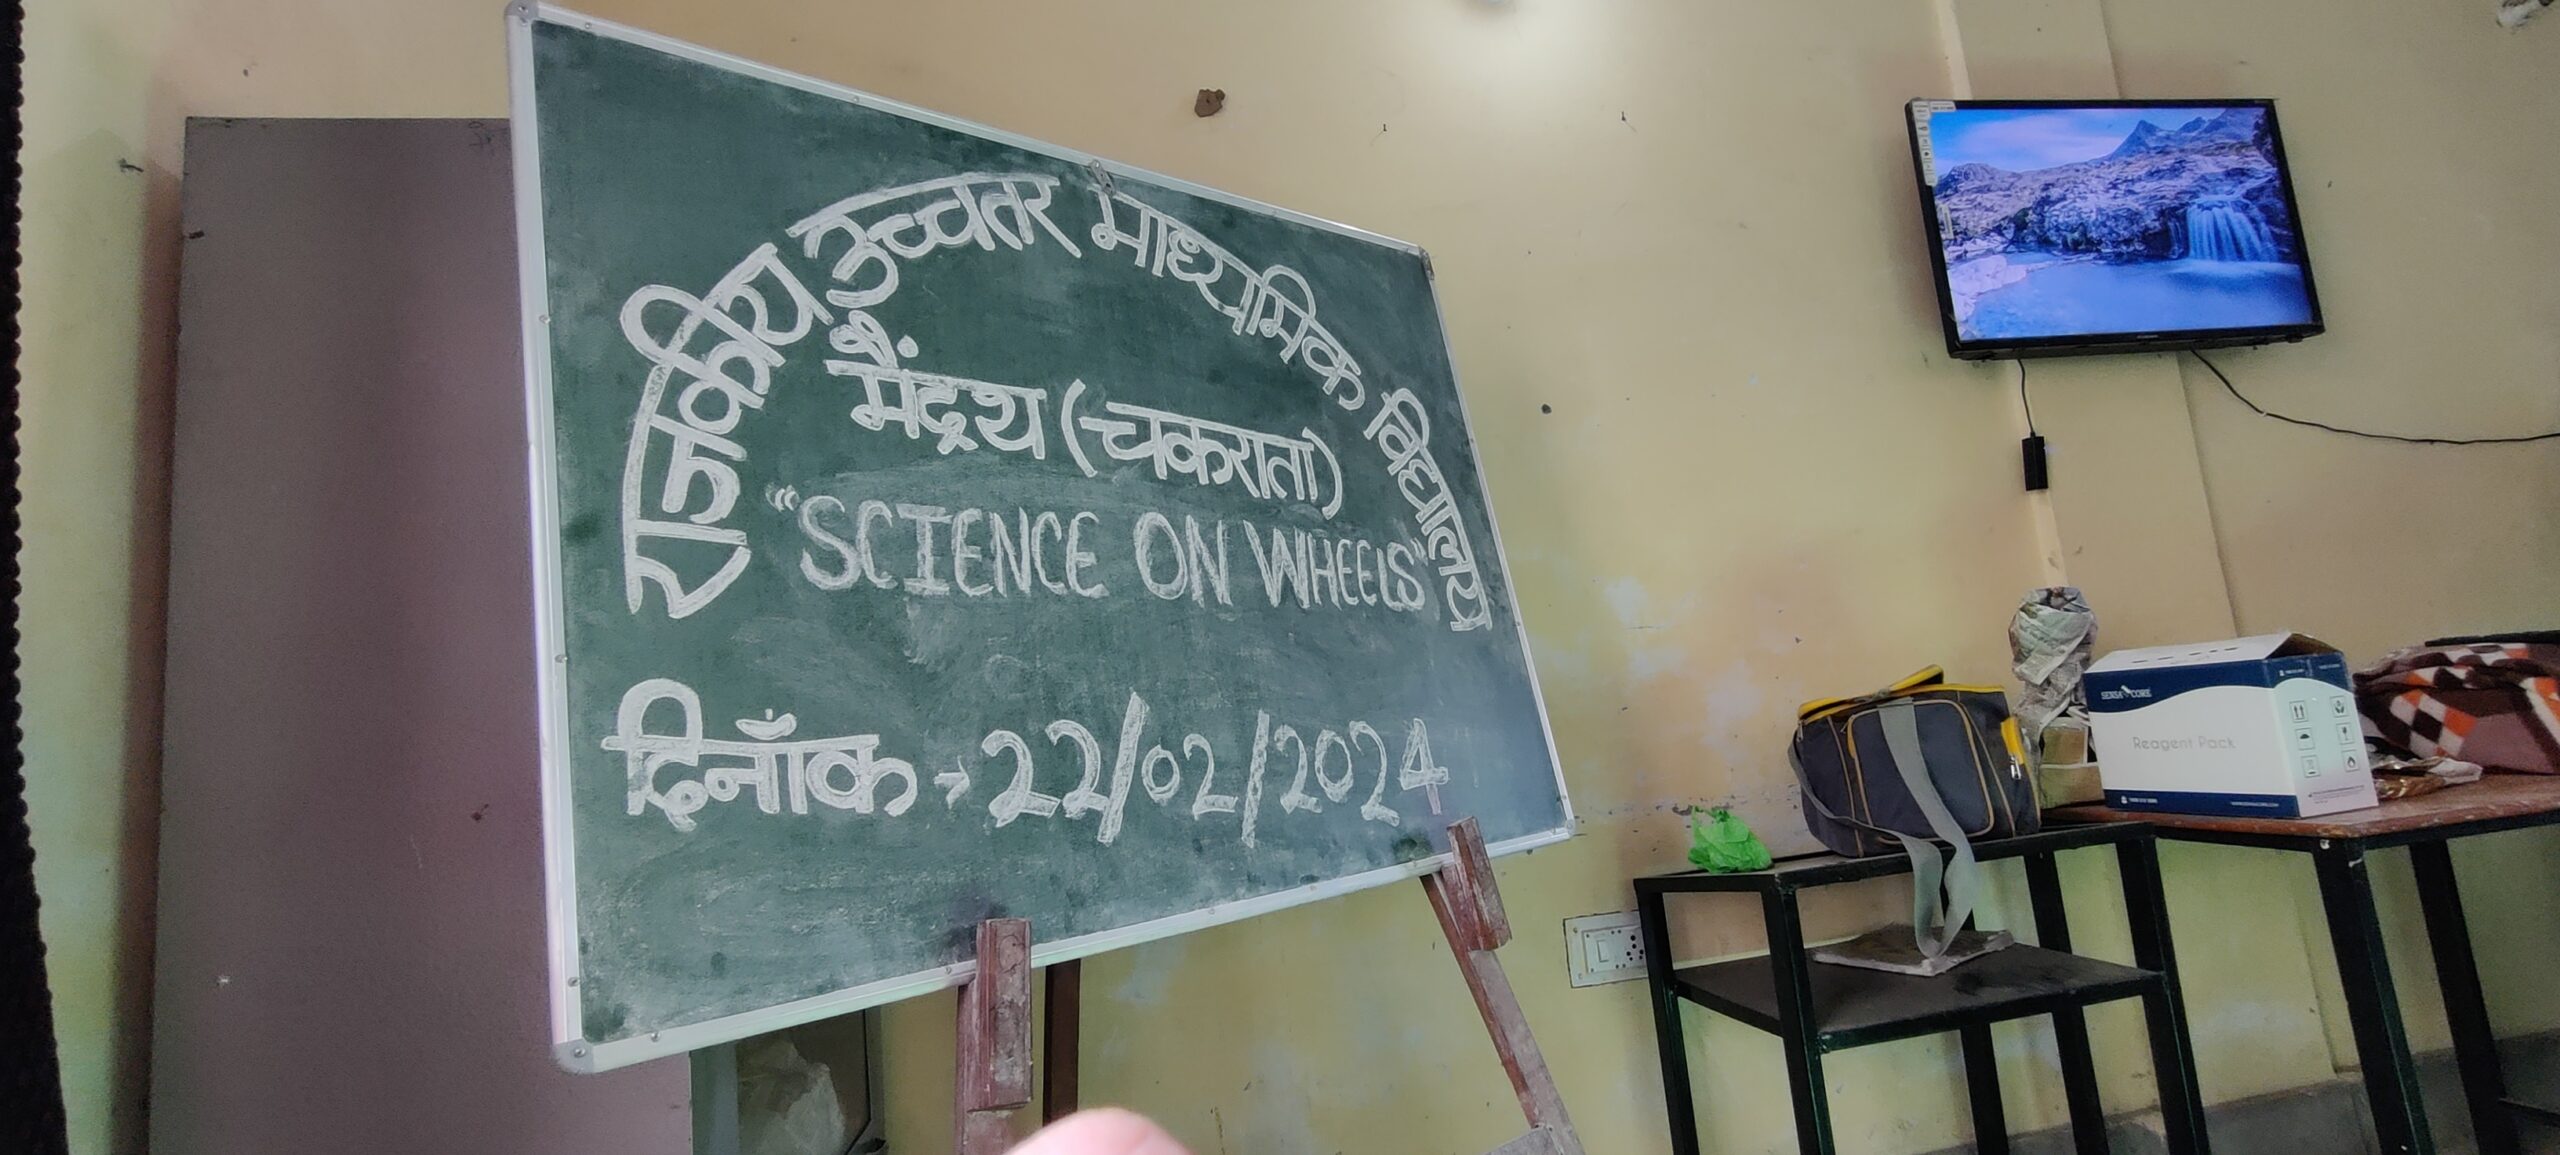 राजकीय उच्चतर माध्यमिक विद्यालय
मैंद्रथ (चकराता)
"SCIENCE ON WHEELS"
दिनाँक → 22/02/2024
SENSA CORE
Reagent Pack